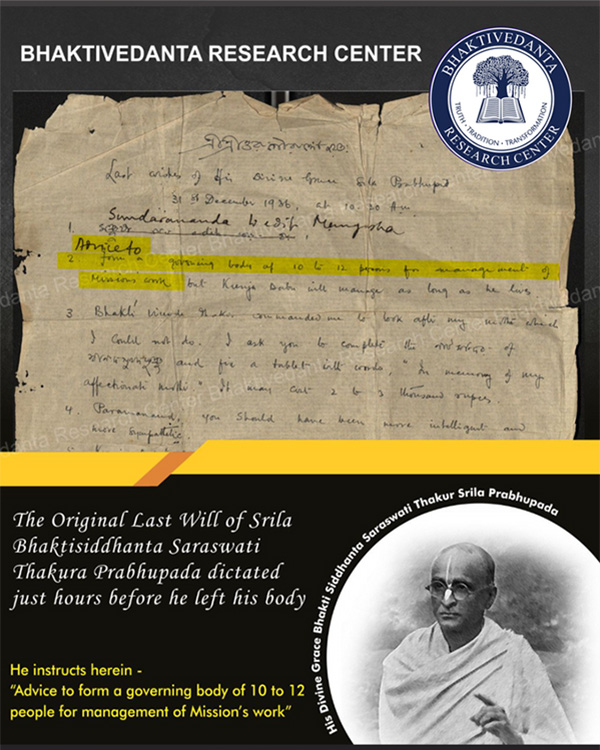 BHAKTIVEDANTA RESEARCH CENTER
BHAKTIVEDANTA
TRUTH • TRADITION • TRANSFORMATION
RESEARCH CENTER
Last wishes of His Divine Grace Srila Prabhupad
31st December 1936, at 10.20 Am
1. Sundarananda
Advice to
2. form a governing body of 10 to 12 persons for management of
Missions work but Kunja Babu will manage as long as he lives
3 Bhakti Vinode Thakur commanded me to look after my mother which
I could not do. I ask you to complete the of
and fix a tablet with words, "In memory of my
affectionate mother" It may cost 2 to 3 thousand rupees.
4. Paramanand, you should have been more intelligent and
more sympathetic.
The Original Last Will of Srila
Bhaktisiddhanta Saraswati
Thakura Prabhupada dictated
just hours before he left his body
He instructs herein -
"Advice to form a governing body of 10 to 12
people for management of Mission's work"
His Divine Grace Bhakti Siddhanta Saraswati Thakur Srila Prabhupada